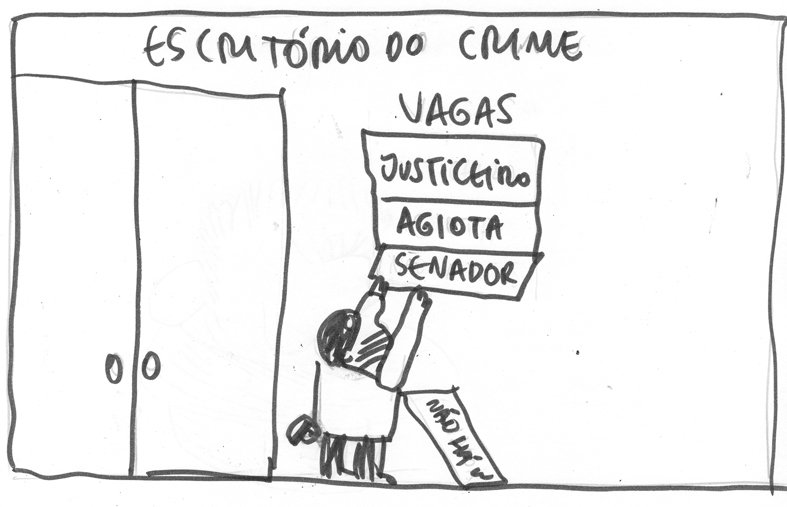 ESCRITÓRIO DO CRIME
VAGAS
JUSTICEIRO
AGIOTA
SENADOR
NÃO HÁ